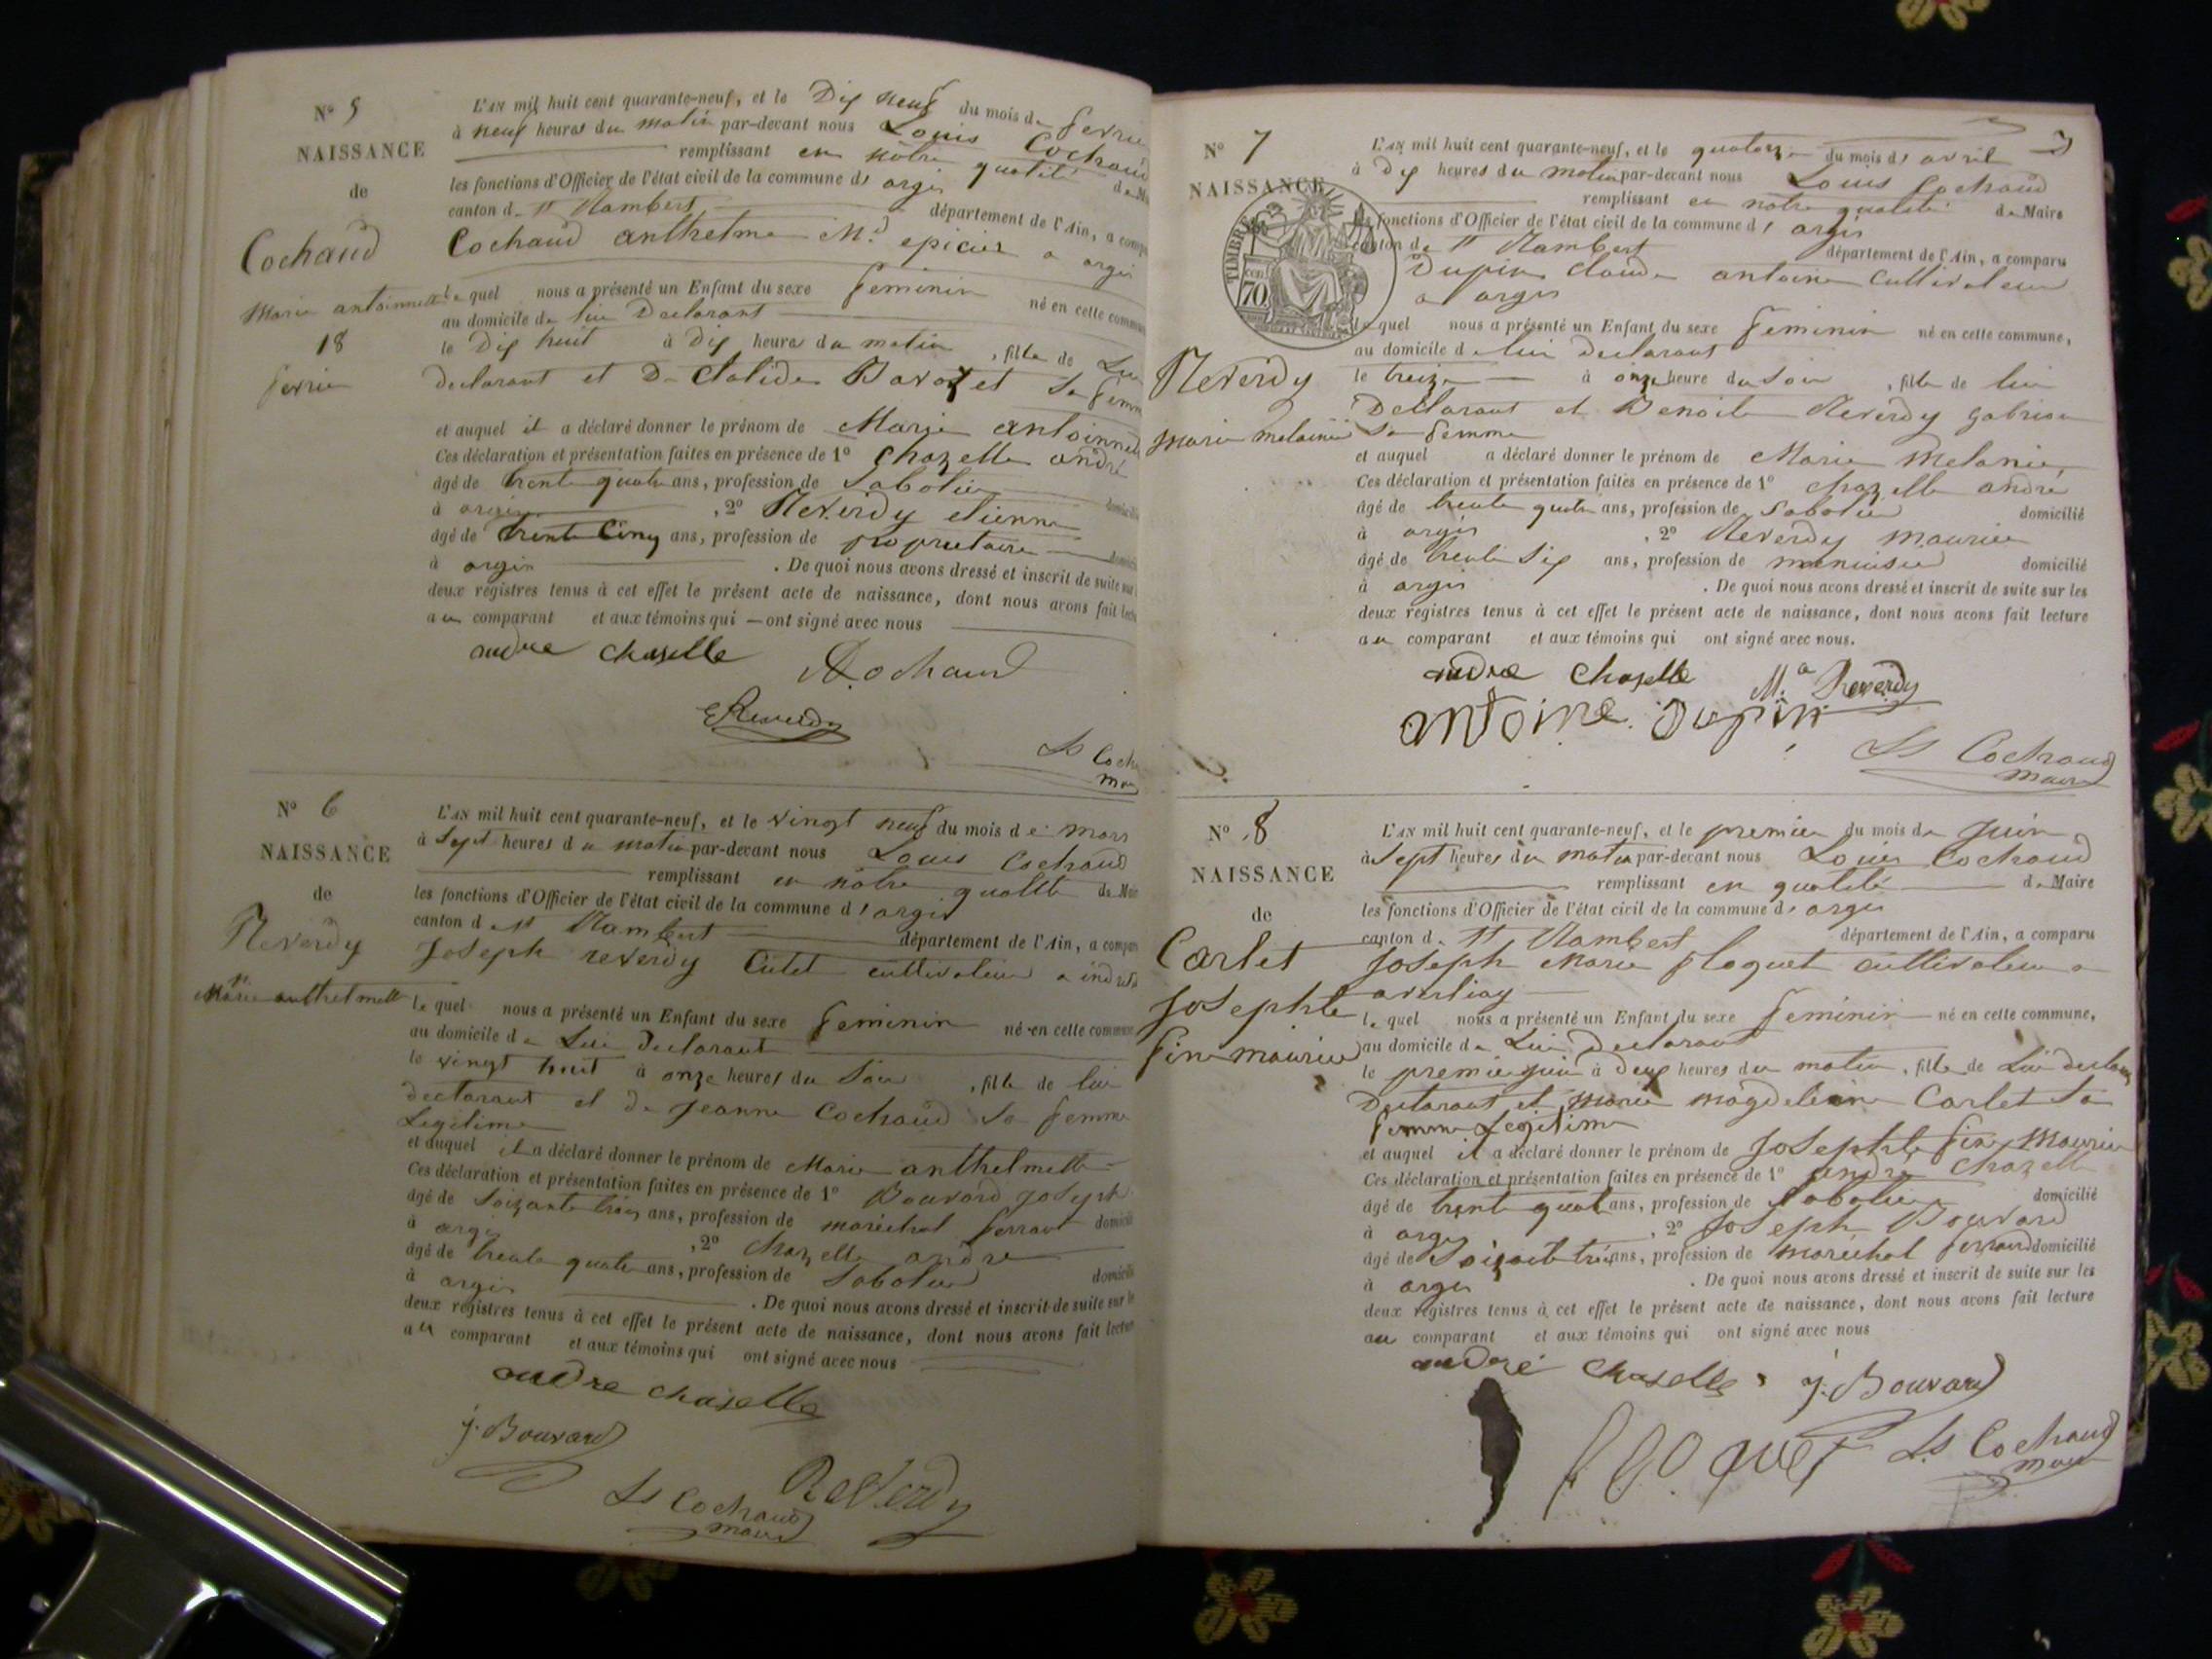 N° 5
NAISSANCE
de
Cochaud
Marie antoinnette
18
fevrier
L'AN mil huit cent quarante-neuf, et le Dix neuf du mois de fevrier
à neuf heures du matin par-devant nous Louis Cochaud
remplissant en nôtre qualité de
les fonctions d'Officier de l'état civil de la commune d' argis
canton de St Rambert département de l'Ain, a comparu
Cochaud anthelme Md epicier a argis
le quel nous a présenté un Enfant du sexe feminin né en cette commune
au domicile de lui Declarant
le Dix huit à Dix heures du matin, fille de Lui
declarant et De Clalide Bavozet Sa femme
et auquel il a déclaré donner le prénom de Marie antoinnette
Ces déclaration et présentation faites en présence de 1° Chazelle andré
âgé de trente quatre ans, profession de Sabotier
à argis, 2° Reverdy etienne
âgé de trente Cinq ans, profession de propriétaire
à argis. De quoi nous avons dressé et inscrit de suite sur
deux registres tenus à cet effet le présent acte de naissance, dont nous avons fait lecture
au comparant et aux témoins qui ont signé avec nous
andre chaselle
Cochaud
E Reverdy
Ls Coch
N° 6
NAISSANCE
de
Reverdy
Marie anthelmette
L'AN mil huit cent quarante-neuf, et le vingt neuf du mois de mars
à Sept heures du matin par-devant nous Louis Cochaud
remplissant en nôtre qualité de Maire
les fonctions d'Officier de l'état civil de la commune d' argis
canton de St Rambert département de l'Ain, a comparu
Joseph reverdy Cutet cultivateur a
le quel nous a présenté un Enfant du sexe feminin né en cette commune
au domicile de Lui Declarant
le vingt huit à onze heures du Soir, fille de lui
declarant et de Jeanne Cochaud Sa femme
Legitime
et auquel il a déclaré donner le prénom de Marie anthelmette
Ces déclaration et présentation faites en présence de 1° Bouvard Joseph
âgé de Soixante trois ans, profession de maréchal ferrant domicilié
à argis, 2° Chazelle andre
âgé de trente quatre ans, profession de Sabotier domicilié
à argis. De quoi nous avons dressé et inscrit de suite sur les
deux registres tenus à cet effet le présent acte de naissance, dont nous avons fait lecture
au comparant et aux témoins qui ont signé avec nous
andre chaselle
j. Bouvard
Reverdy
Ls Cochaud
maire
N° 7
NAISSANCE
TIMBRE
70
Reverdy
Marie melainie
L'AN mil huit cent quarante-neuf, et le quatorze du mois d' avril
à Dix heures du matin par-devant nous Louis Cochaud
remplissant en nôtre qualité de Maire
les fonctions d'Officier de l'état civil de la commune d' argis
canton de St Rambert département de l'Ain, a comparu
Dupin claude antoine cultivateur
a argis
le quel nous a présenté un Enfant du sexe feminin né en cette commune,
au domicile de lui declarant
le treize à onze heure du Soir, fille de lui
Declarant et Benoite Reverdy
Sa femme
et auquel a déclaré donner le prénom de Marie Melanie,
Ces déclaration et présentation faites en présence de 1° chazelle andré
âgé de trente quatre ans, profession de Sabotier domicilié
à argis, 2° Reverdy maurice
âgé de trente Six ans, profession de menuisier domicilié
à argis. De quoi nous avons dressé et inscrit de suite sur les
deux registres tenus à cet effet le présent acte de naissance, dont nous avons fait lecture
au comparant et aux témoins qui ont signé avec nous.
andre Chaselle
M.ce Reverdy
antoine Dupin
Ls Cochaud
maire
N° 8
NAISSANCE
de
Carlet
Josephte
fine maurice
L'AN mil huit cent quarante-neuf, et le premier du mois de Juin
à Sept heures du matin par-devant nous Louis Cochaud
remplissant en qualité de Maire
les fonctions d'Officier de l'état civil de la commune d' argis
canton de St Rambert département de l'Ain, a comparu
Joseph Marie floquet cultivateur a
le quel nous a présenté un Enfant du sexe feminin né en cette commune,
au domicile de Lui Declarant
le premier juin à Deux heures du matin, fille de Lui
Declarant et marie magdeleine Carlet Sa
femme Legitime
et auquel il a déclaré donner le prénom de Josephte fine Maurice
Ces déclaration et présentation faites en présence de 1° andré Chazelle
âgé de trente quatre ans, profession de Sabotier domicilié
à argis, 2° Joseph Bouvard
âgé de Soixante trois ans, profession de maréchal ferrand domicilié
à argis. De quoi nous avons dressé et inscrit de suite sur les
deux registres tenus à cet effet le présent acte de naissance, dont nous avons fait lecture
au comparant et aux témoins qui ont signé avec nous
andré chaselle
j. Bouvard
floquet
Ls Cochaud
maire